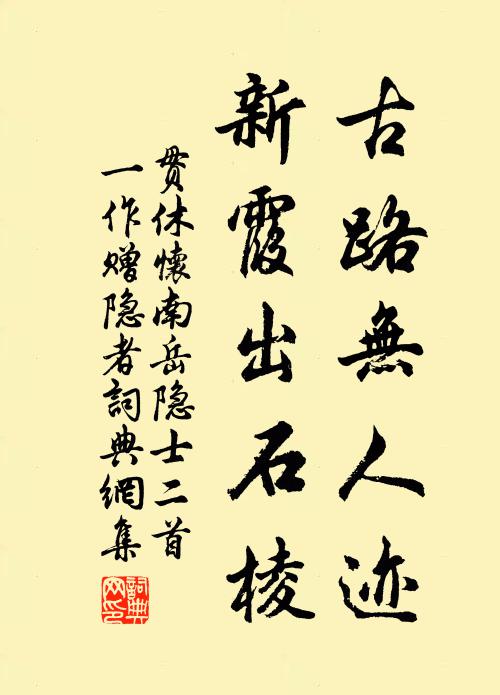 古路無人迹
新霞出石棱
贯休懷南岳隐士二首
一作赠隐者詞典網集
詞典网印